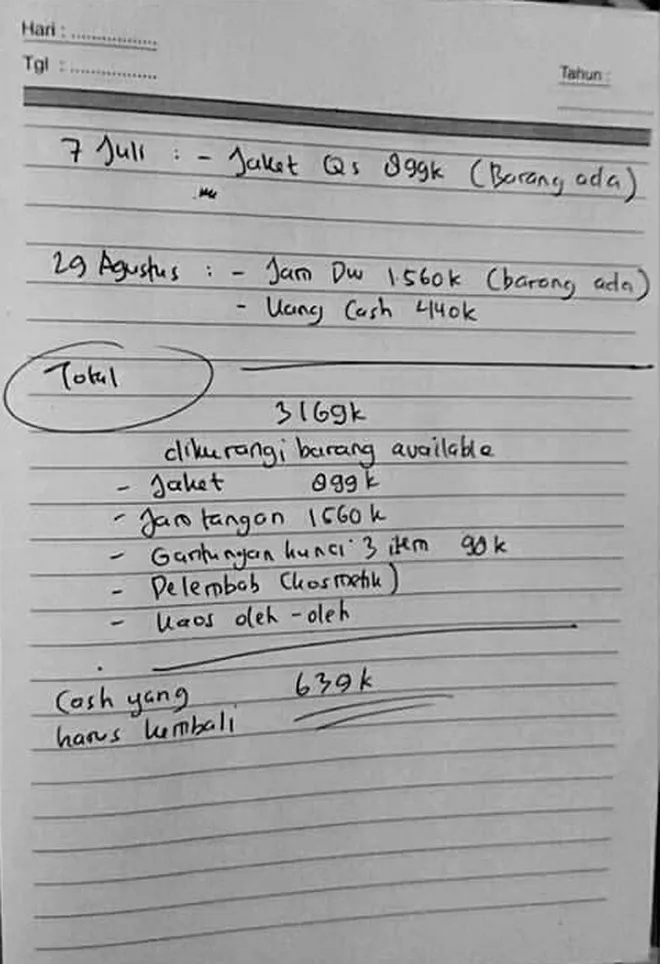 Hari : ................
Tgl : ................
Tahun :
7 Juli : - Jaket Qs 899k (Barang ada)
29 Agustus : - Jam DW 1.560k (barang ada)
- Uang Cash 440k
Total
3169k
dikurangi barang available
- Jaket 899k
- Jam tangan 1560k
- Gantungan kunci 3 item 90k
- Pelembab (kosmetik)
- Kaos oleh-oleh
Cash yang 639k
harus kembali